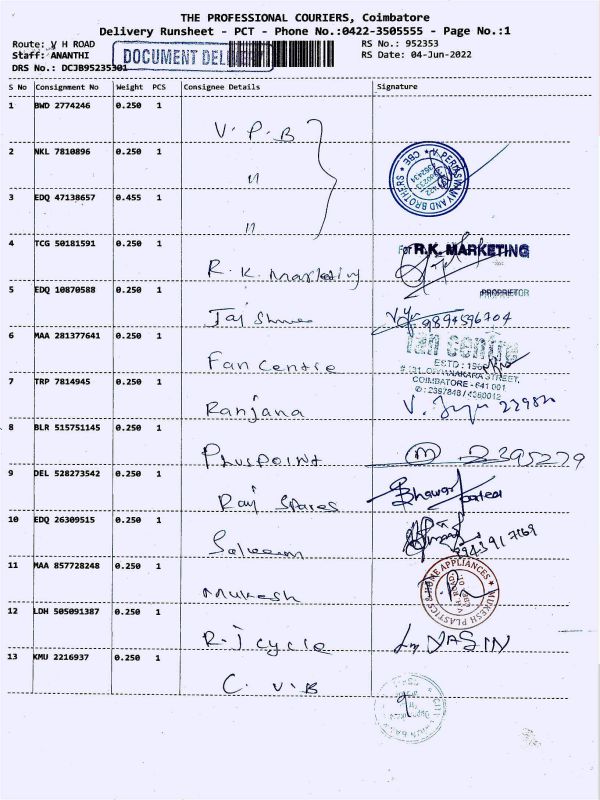 THE PROFESSIONAL COURIERS, Coimbatore
Delivery Runsheet - PCT - Phone No.:0422-3505555 - Page No.:1
Route: V H ROAD RS No.: 952353
Staff: ANANTHI RS Date: 04-Jun-2022
DOCUMENT DEL
DRS No.: DCJB95235301
S No Consignment No Weight PCS Consignee Details Signature
1 BWD 2774246 0.250 1 V. P. B
2 NKL 7810896 0.250 1 "
PERIASWAMY AND BROTHERS CBE
3 EDQ 47138657 0.455 1 "
4 TCG 50181591 0.250 1 R. K. Marketing
For R.K. MARKETING
PROPRIETOR
5 EDQ 10870588 0.250 1 Taj Shree
9894596704
6 MAA 281377641 0.250 1 Fan Centre
fan centre
ESTD : 
STREET,
COIMBATORE - 641 001
: 2397848 / 4380012
7 TRP 7814945 0.250 1 Ranjana
V.
8 BLR 515751145 0.250 1 Pluspoint
2395279
9 DEL 528273542 0.250 1 Raj Spares
10 EDQ 26309515 0.250 1 Saleem
11 MAA 857728248 0.250 1 Mukesh
MUKESH PLASTICS & HOME APPLIANCES
12 LDH 505091387 0.250 1 R-J Cycle
YASIN
13 KMU 2216937 0.250 1 C. V. B